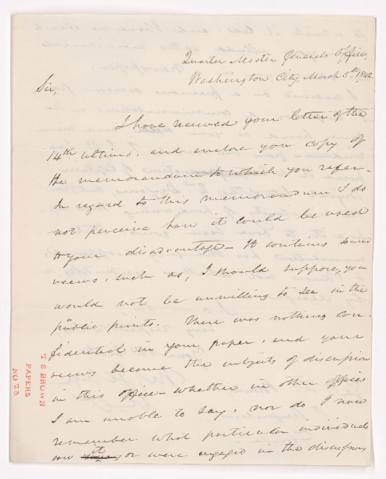 Quarter Master Generals Office,
Washington City March 5th 1842.
Sir,
I have received your letter of the
14th ultimo, and enclose you copy of
the memorandum to which you refer.
In regard to this memorandum I do
not perceive how it could be used
to your disadvantage. It contains some
views, such as, I should suppose, you
would not be unwilling to see in the
public prints. There was nothing con-
fidential in your paper, and your
views became the subjects of discussion
in this office whether in other offices
I am unable to say, nor do I now
remember what particular individuals
or were engaged in the discussions
T S BROWN
PAPERS
NO 23